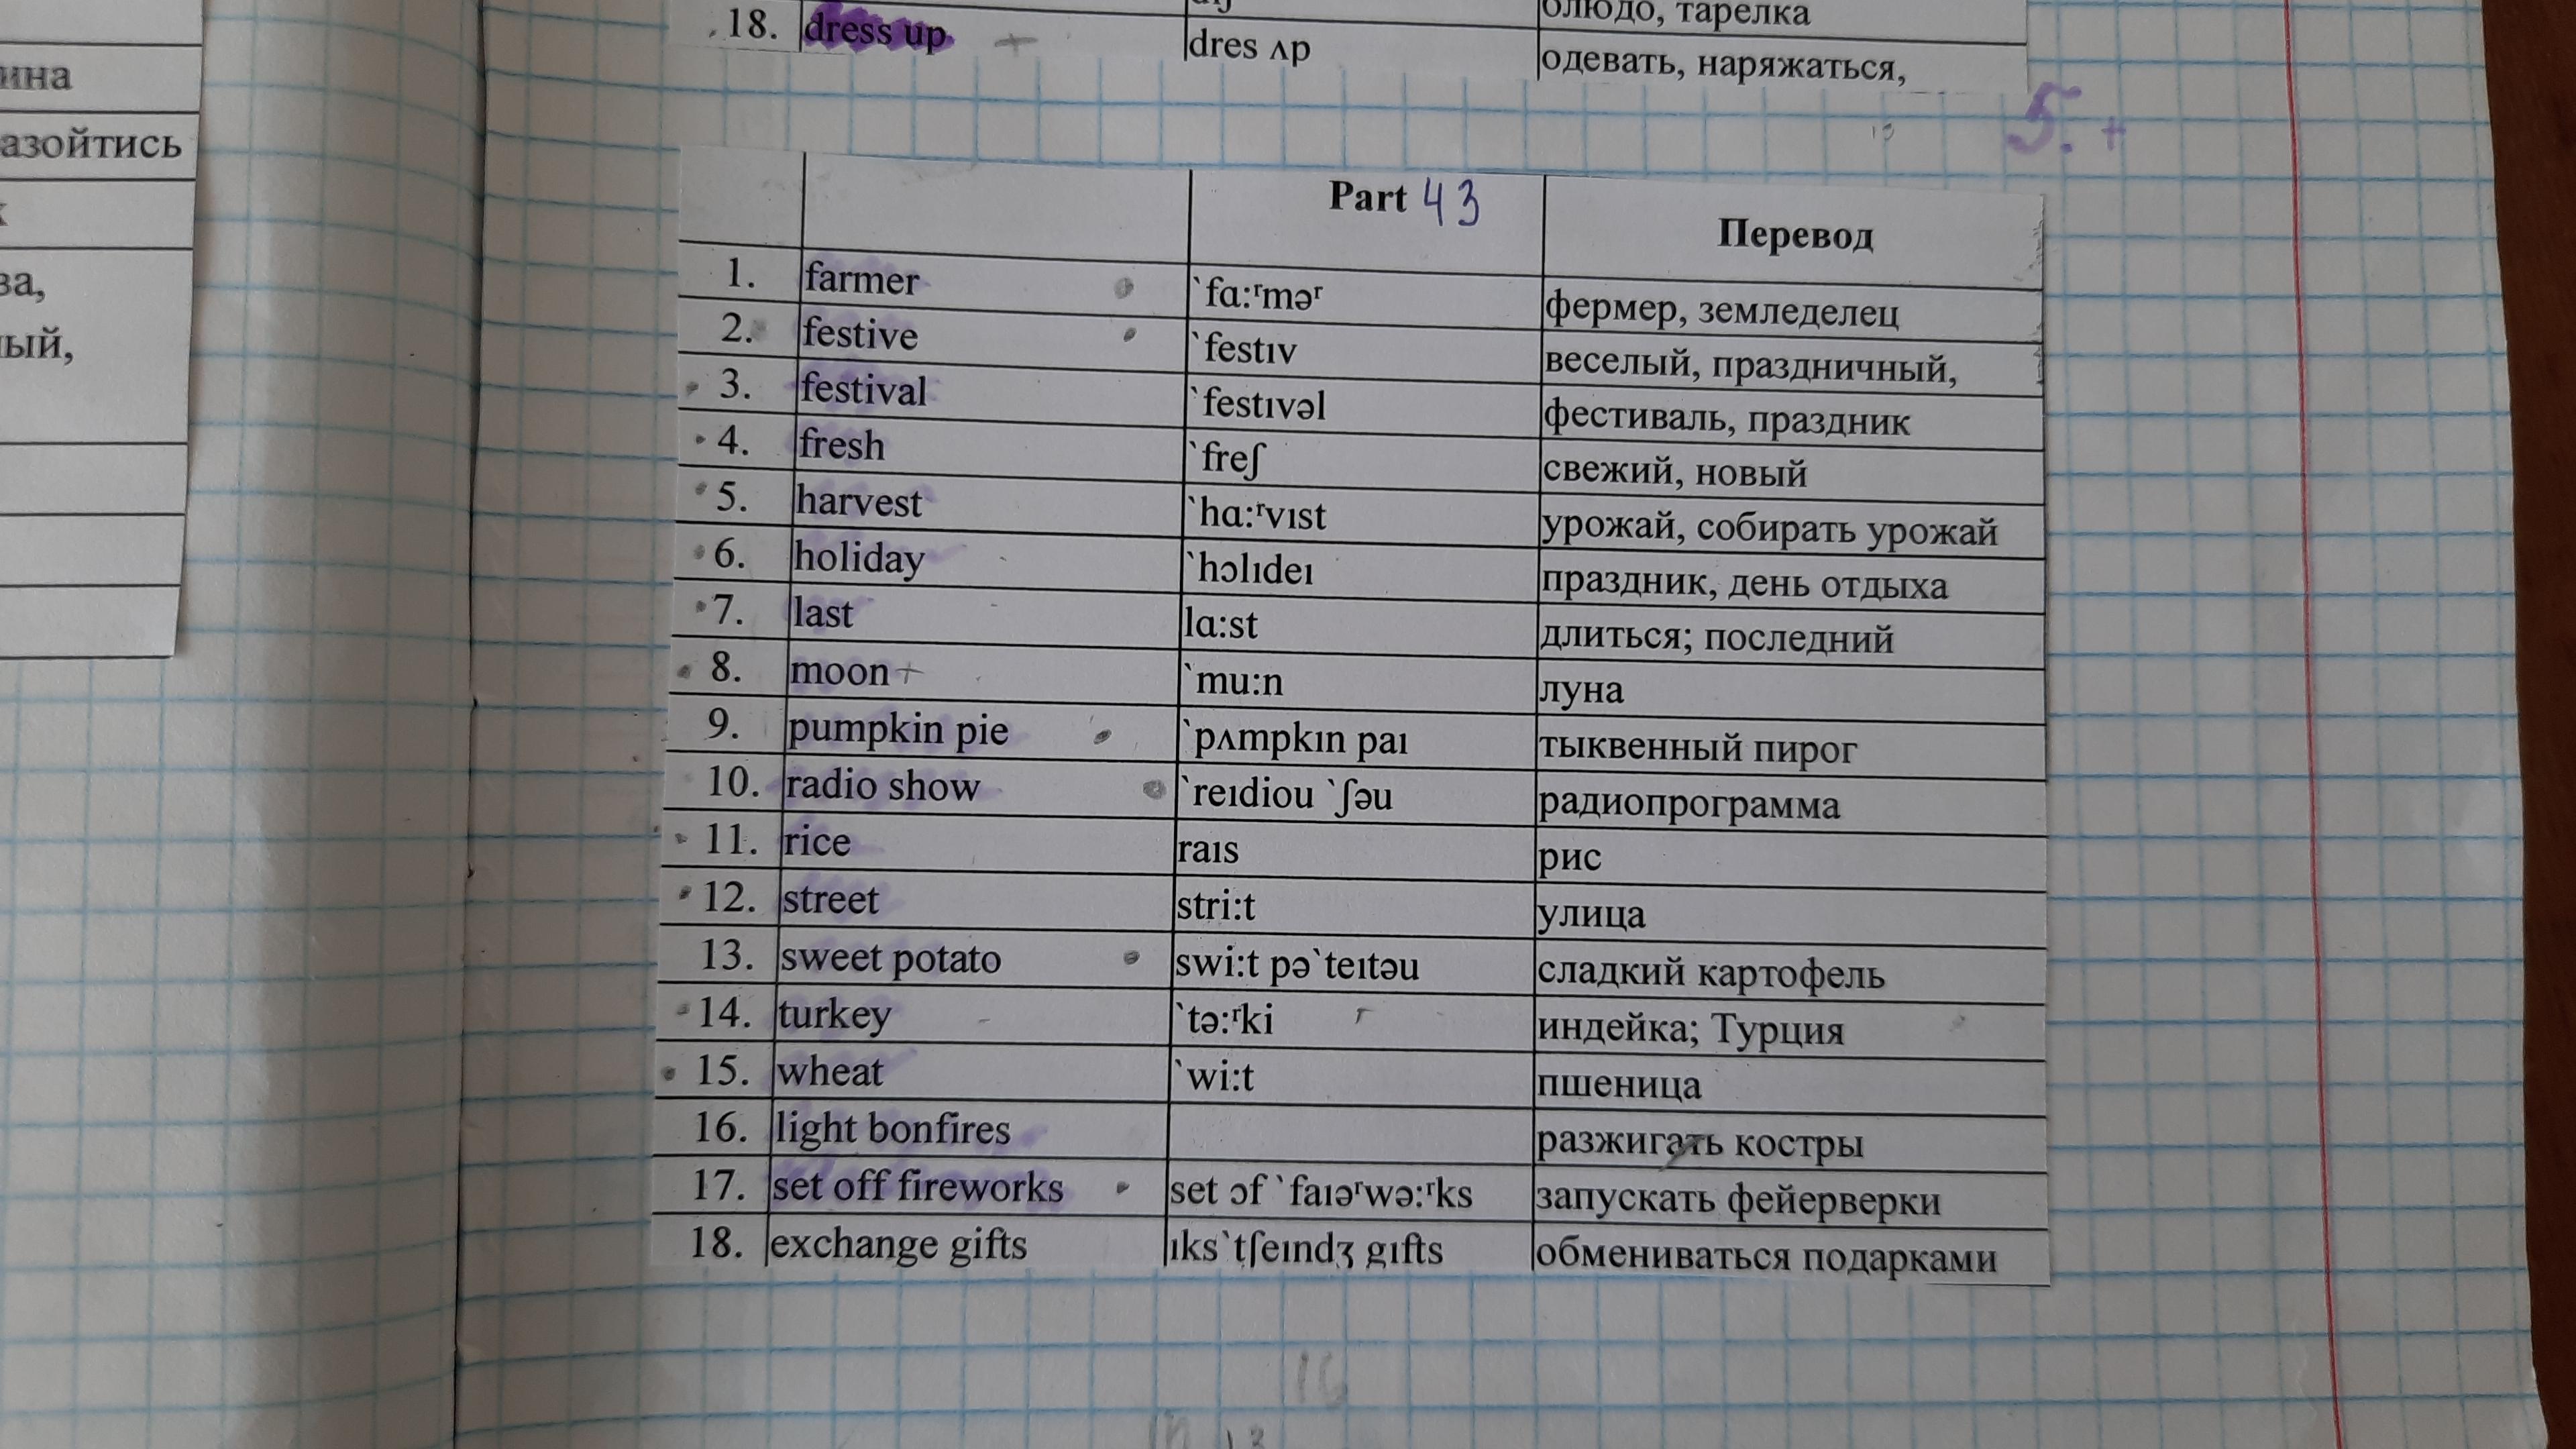 ина
азойтись
ва,
ый,
блюдо, тарелка
18. dress up + dres ʌp одевать, наряжаться,
5. +
Part 43 Перевод
1. farmer `fɑ:ʳməʳ фермер, земледелец
2. festive `festıv веселый, праздничный,
3. festival `festıvəl фестиваль, праздник
4. fresh `freʃ свежий, новый
5. harvest `hɑ:ʳvıst урожай, собирать урожай
6. holiday `hɔlıdeı праздник, день отдыха
7. last lɑ:st длиться; последний
8. moon + `mu:n луна
9. pumpkin pie `pʌmpkın paı тыквенный пирог
10. radio show `reıdiou `ʃəu радиопрограмма
11. rice raıs рис
12. street stri:t улица
13. sweet potato swi:t pə`teıtəu сладкий картофель
14. turkey `tə:ʳki индейка; Турция
15. wheat `wi:t пшеница
16. light bonfires разжигать костры
17. set off fireworks set ɔf `faıəʳwə:ʳks запускать фейерверки
18. exchange gifts ıks`tʃeındʒ gıfts обмениваться подарками
16